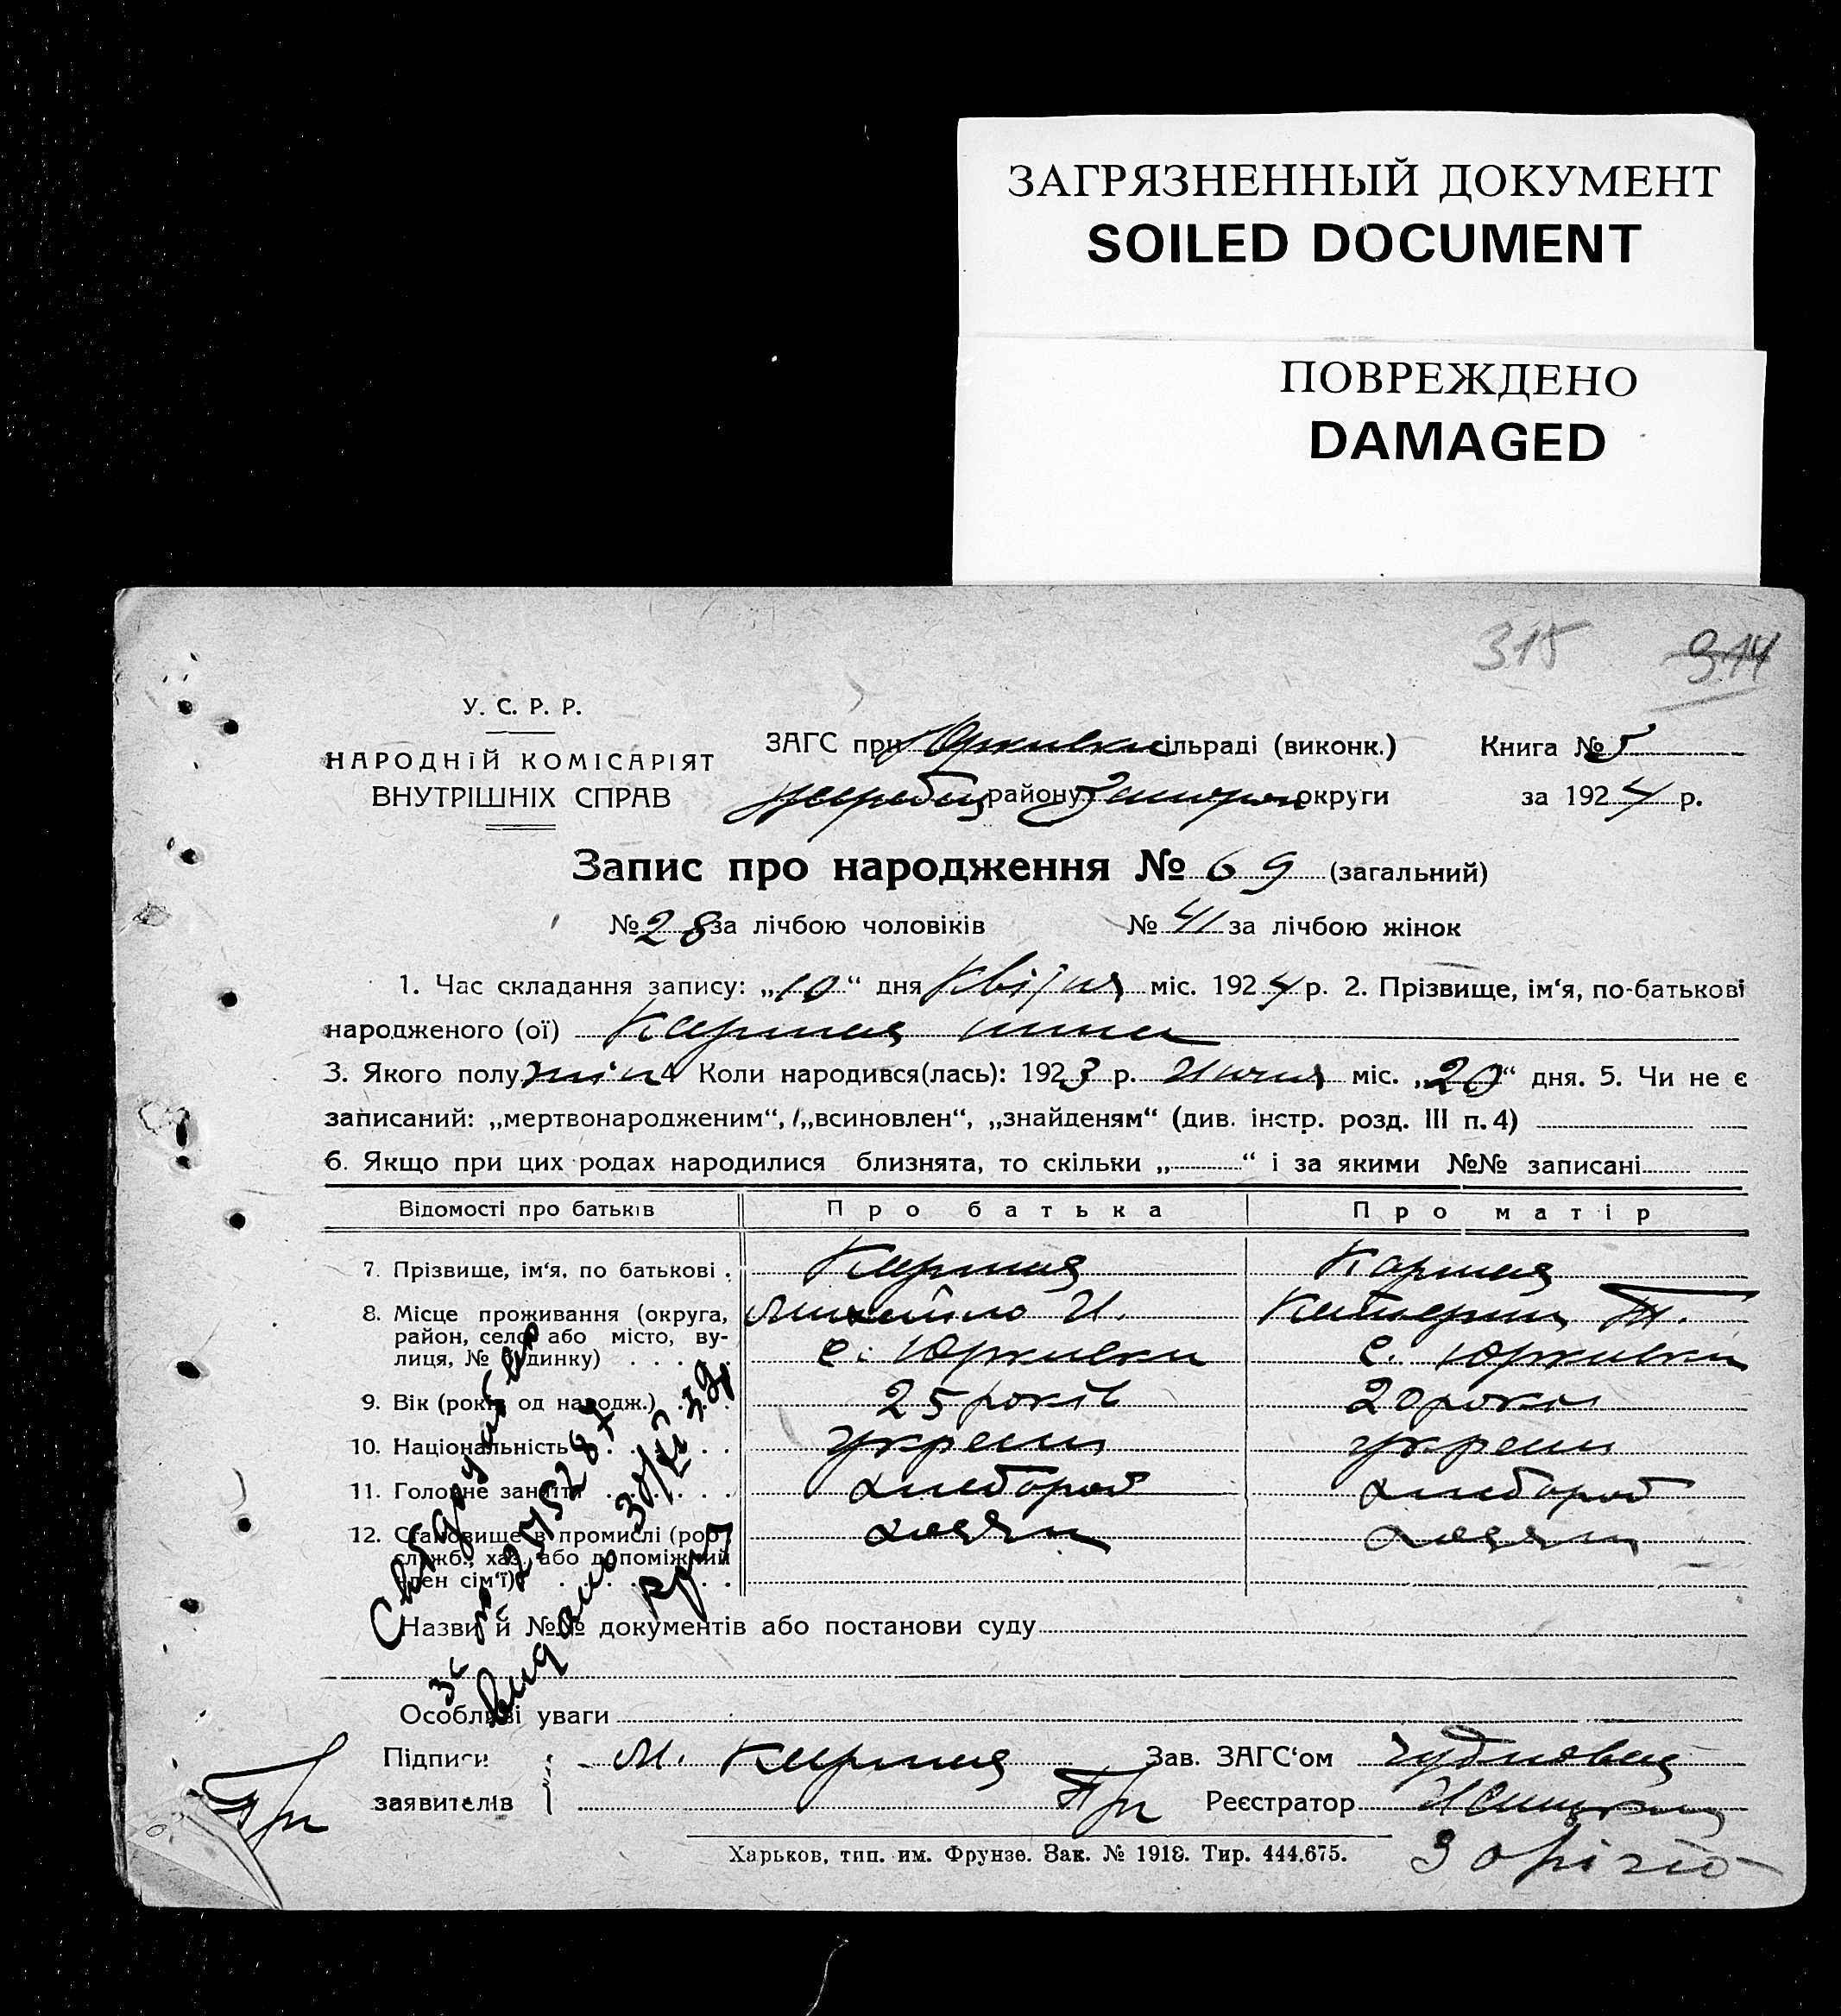 ЗАГРЯЗНЕННЫЙ ДОКУМЕНТ
SOILED DOCUMENT
ПОВРЕЖДЕНО
DAMAGED
315 314
У. С. Р. Р.
НАРОДНІЙ КОМІСАРІЯТ
ВНУТРІШНІХ СПРАВ
ЗАГС при Юркивки сільраді (виконк.) Книга № 5
району округи за 1924 р.
Запис про народження № 69 (загальний)
№ 28 за лічбою чоловіків № 41 за лічбою жінок
1. Час складання запису: „10“ дня Квітня міс. 1924 р. 2. Прізвище, ім‘я, по-батькові
народженого (ої)
3. Якого полу 4 Коли народився(лась): 1923 р. міс. „20“ дня. 5. Чи не є
записаний: „мертвонародженим“, „всиновлен“, „знайденям“ (див. інстр. розд. III п. 4)
6. Якщо при цих родах народилися близнята, то скільки „ “ і за якими №№ записані
Відомості про батьків Про батька Про матір
7. Прізвище, ім‘я, по батькові .
8. Місце проживання (округа, Михайло И. Катерина Т.
район, село або місто, ву-
лиця, № будинку) с. Юркивки с. Юркивки
9. Вік (років од народж.) 25 років 20 років
10. Національність украин украин
11. Головне заняття хлебороб хлебороб
12. Становище в промислі (роб., хозяин хозяин
служб., хаз. або допоміжний
член сім‘ї)
Назви й №№ документів або постанови суду
Особливі уваги
Підписи М. Зав. ЗАГС‘ом
заявителів Реєстратор
Харьков, тип. им. Фрунзе. Зак. № 1918. Тир. 444.675.